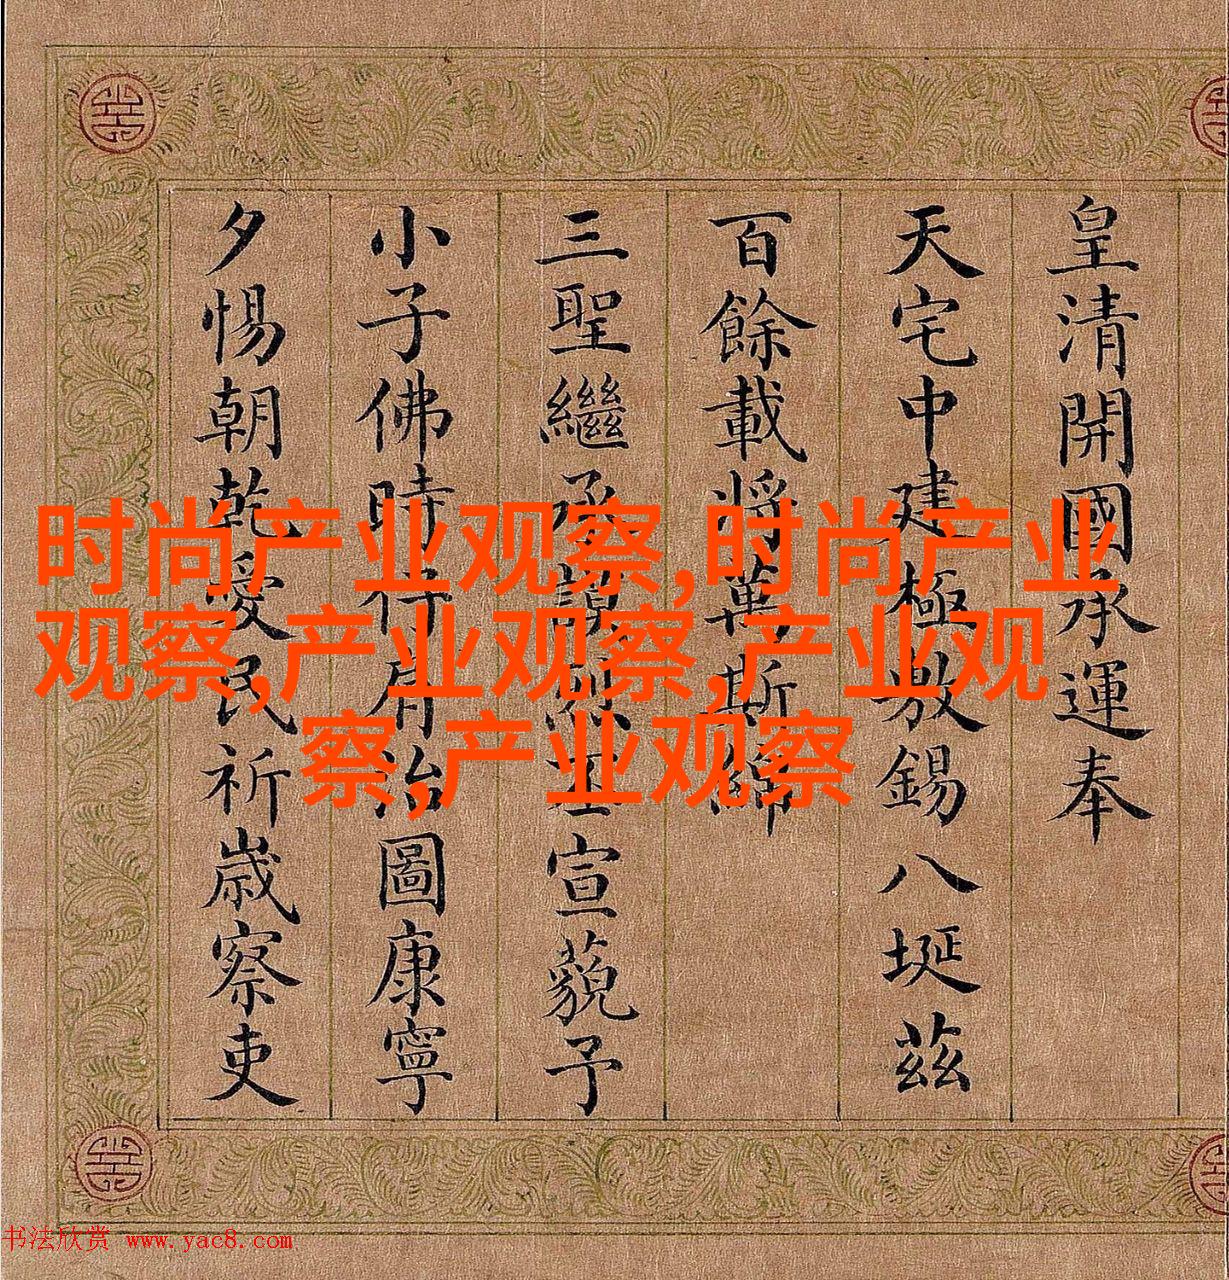 皇清開國承運奉
天宅中建極敷錫八埏茲
百餘載將萬斯綿
三聖繼承謨烈丕宣藐予
小子佛時仔肩治圖康寧
夕惕朝乾愛民祈歲察吏
时尚产业观察,时尚产业
观察,产业观察,产业观
察,产业观察
书法欣赏 www.yac8.com